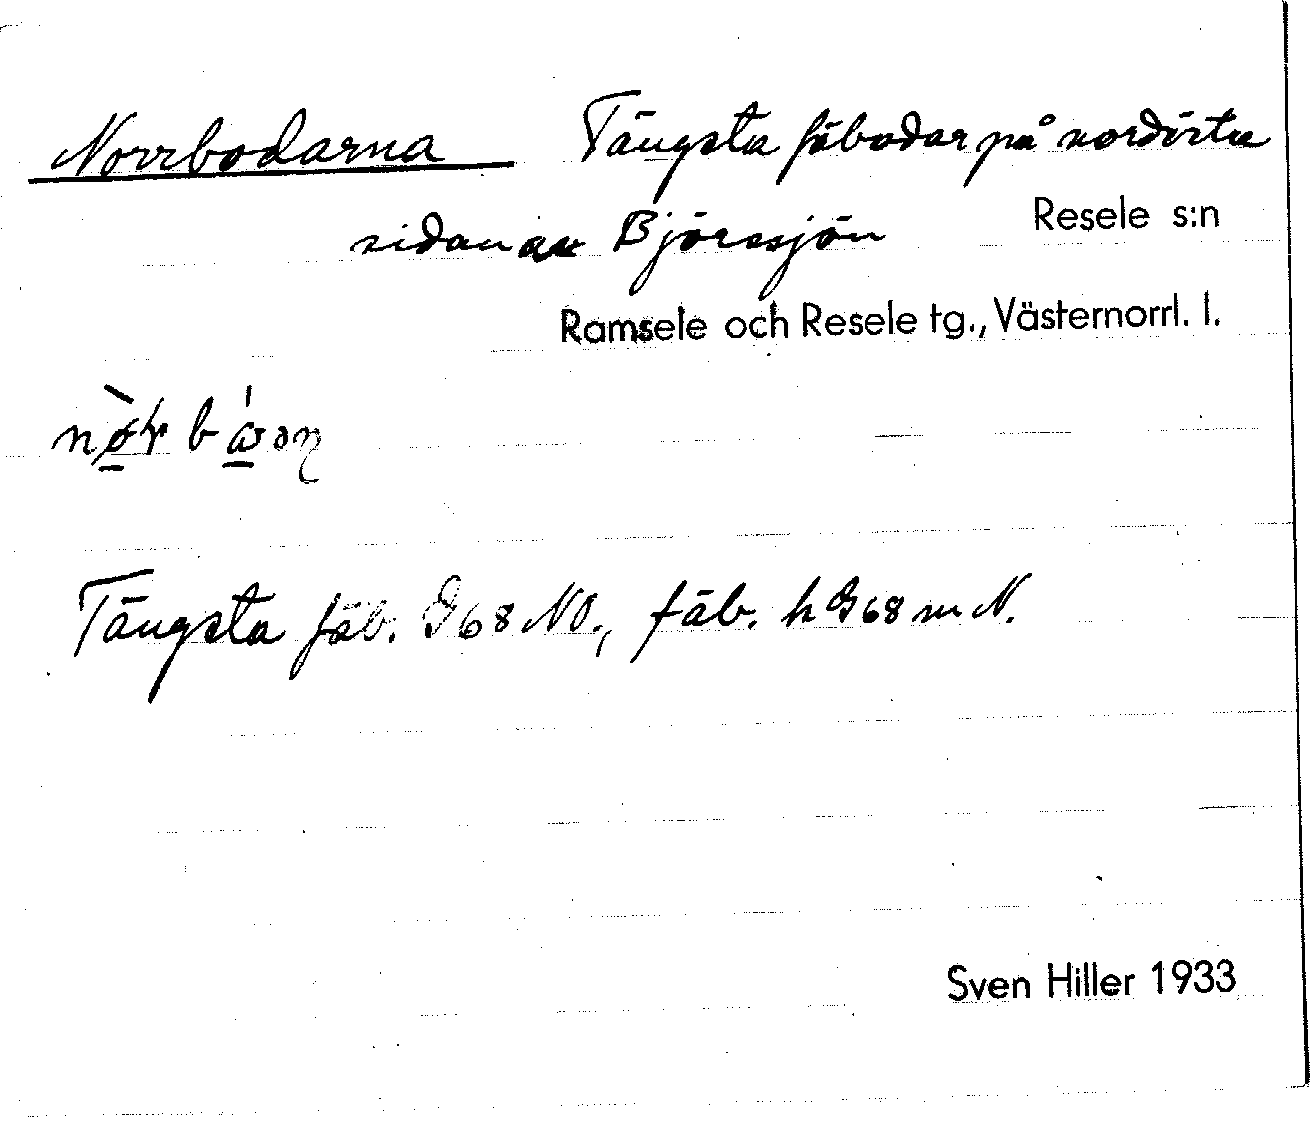 Norrbodarna Tängsta fäbodar på nordöstra
sidan av Björssjön Resele s:n
Ramsele och Resele tg., Västernorrl. l.
Tängsta fäb. G68 NO., fäb. h G68 m N.
Sven Hiller 1933